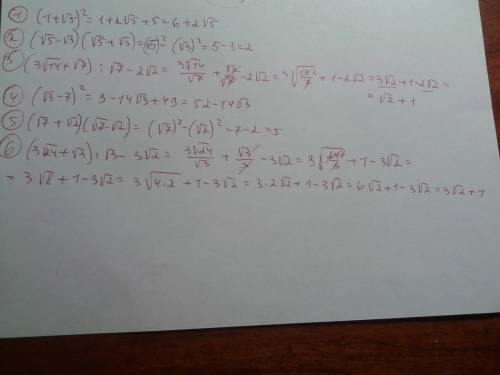 ① (1+√5)² = 1+2√5+5 = 6+2√5
② (√5-√3)(√5+√3) = (√5)² - (√3)² = 5-3 = 2
③ (3√14+√7) : √7 - 2√2 = 3√14/√7 + √7/√7 - 2√2 = 3√(14/7) + 1 - 2√2 = 3√2+1-2√2 =
= √2+1
④ (√3-7)² = 3-14√3+49 = 52-14√3
⑤ (√7+√2)(√7-√2) = (√7)²-(√2)² = 7-2 = 5
⑥ (3√24+√3) : √3 - 3√2 = 3√24/√3 + √3/√3 - 3√2 = 3√(24/3) + 1 - 3√2 =
= 3√8 + 1 - 3√2 = 3√4·2 + 1 - 3√2 = 3·2√2 + 1 - 3√2 = 6√2 + 1 - 3√2 = 3√2 + 1